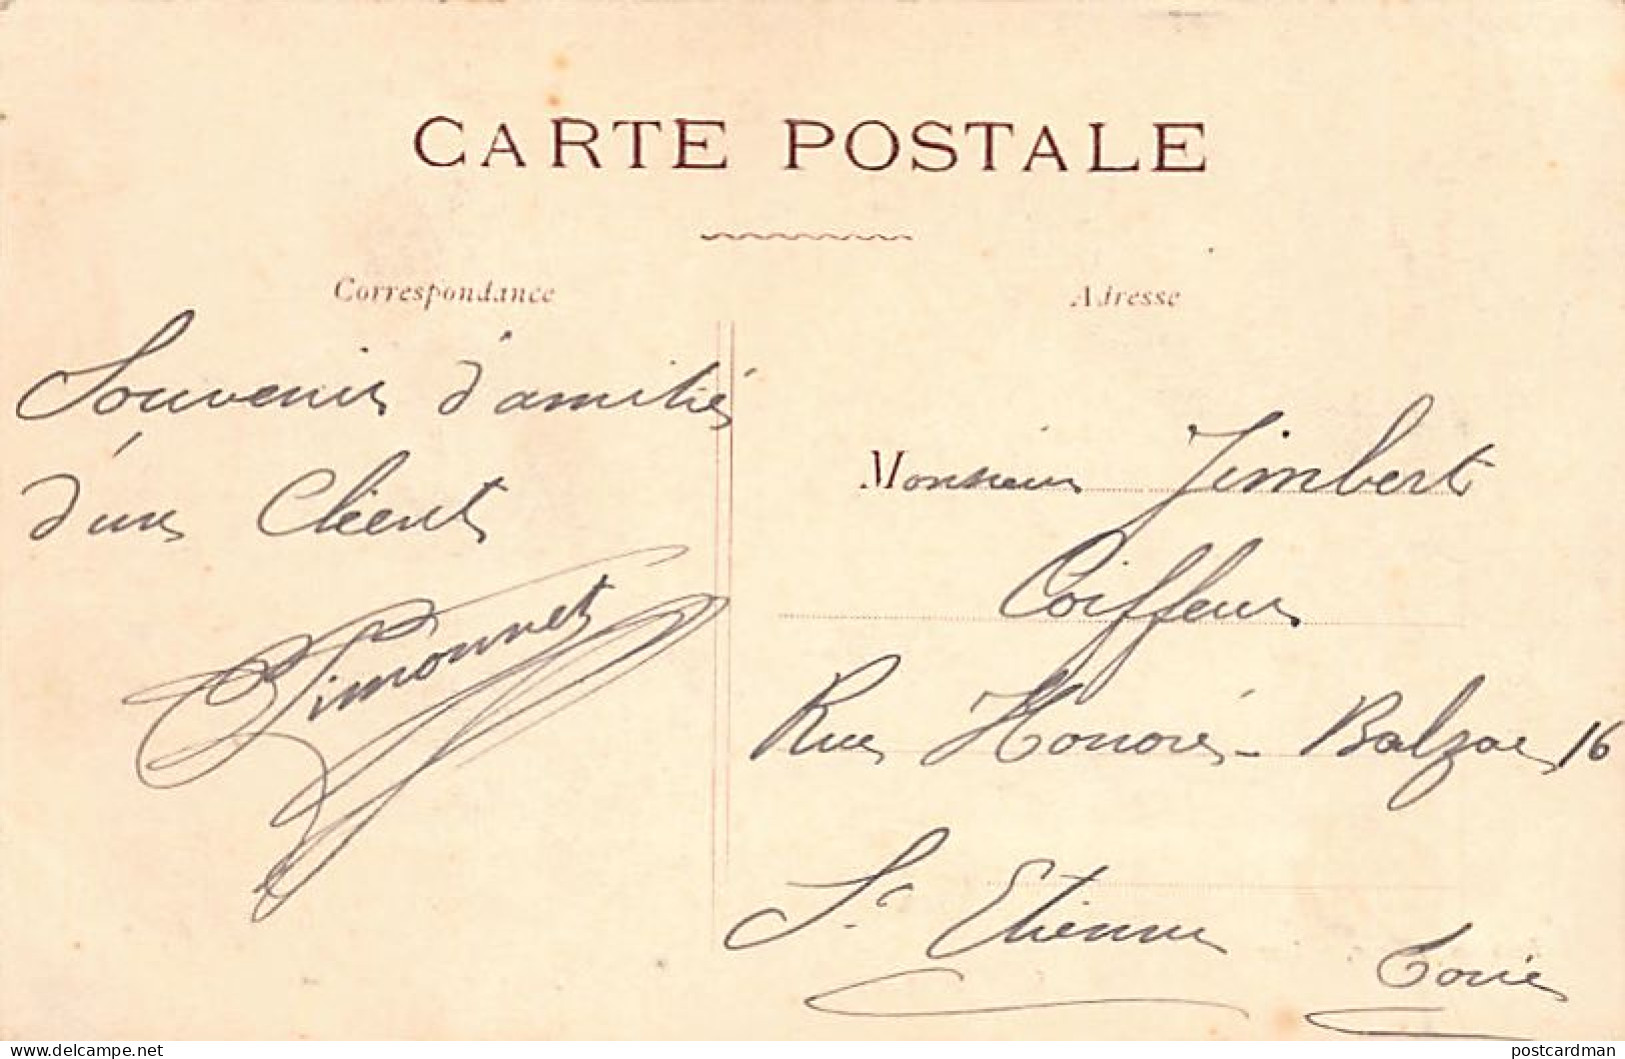 CARTE POSTALE
Correspondance
Adresse
Souvenir d'amitiés
d'un Client
Simonnet
Monsieur Jimbert
Coiffeur
Rue Honoré-Balzac 16
St Etienne
Loire
www.delcampe.net
postcardman